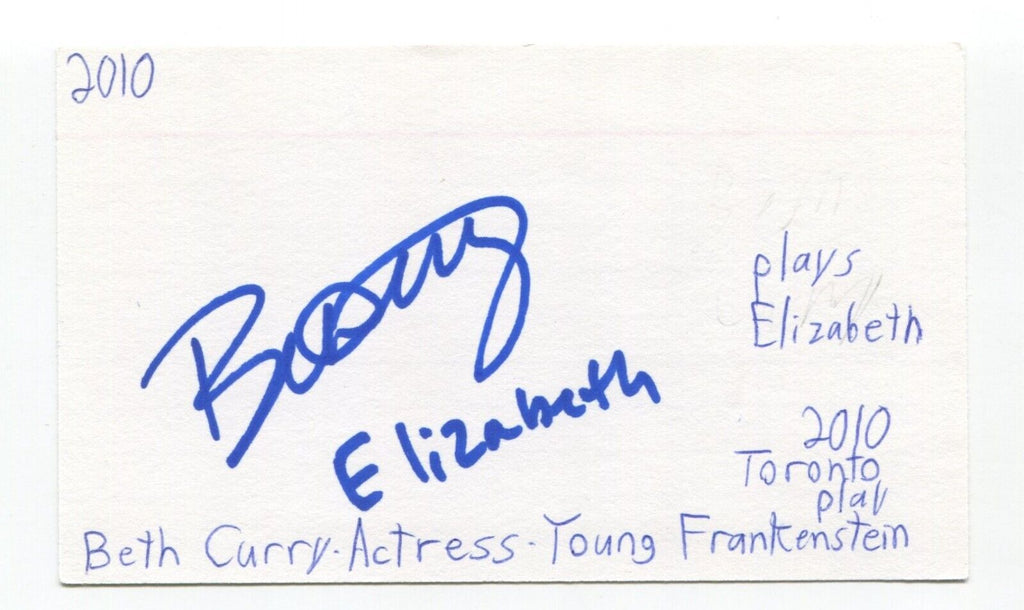 2010
plays
Elizabeth
Elizabeth
2010
Toronto
play
Beth Curry. Actress. Young Frankenstein